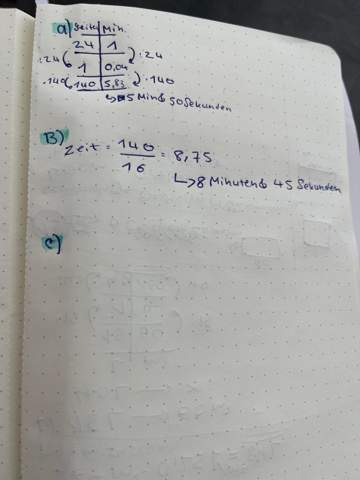 a) Seite Min.
24 1
:24 :24
1 0,04
·140 ·140
140 5,83
↳ 5 Min & 50 Sekunden
B)
Zeit = 140/16 = 8,75
↳ 8 Minuten & 45 Sekunden
C)